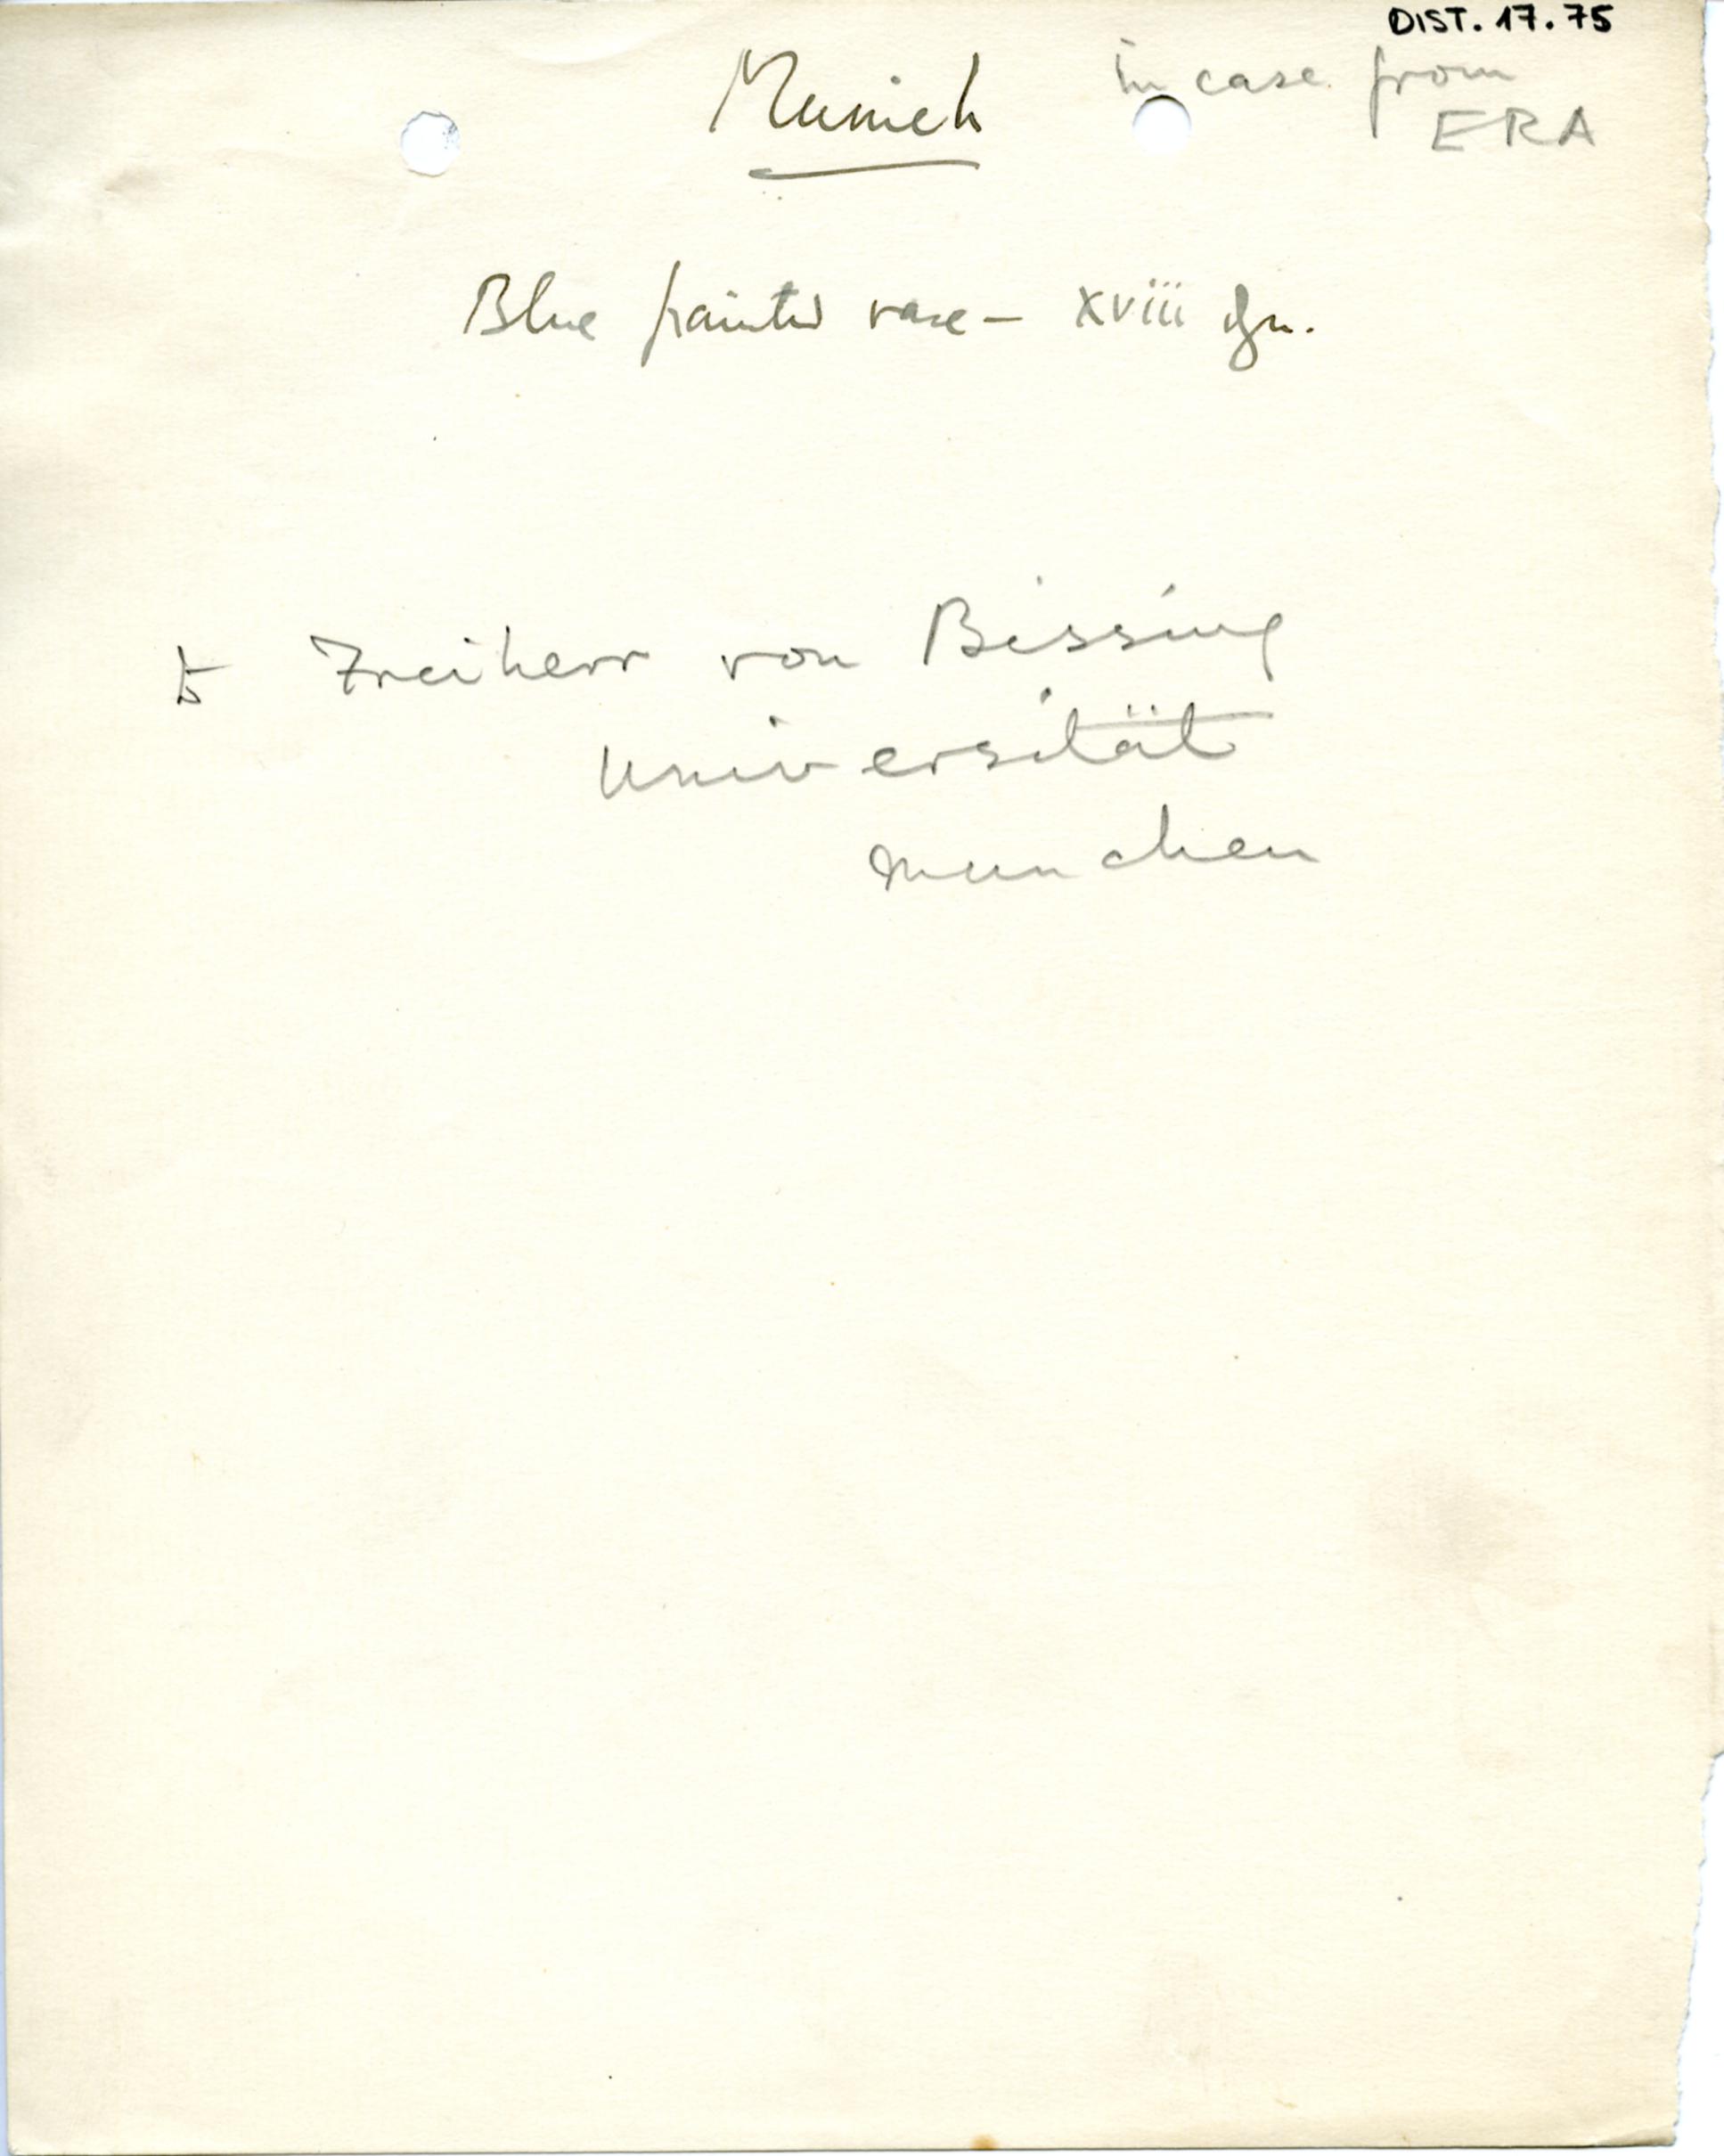 DIST. 17.75
Munich
in case from
ERA
Blue painted vase – XVIII dyn.
to Freiherr von Bissing
Universität
Munchen